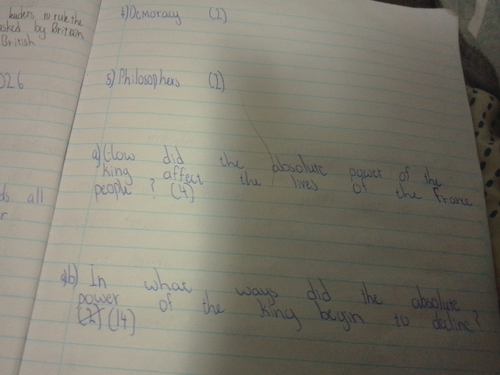 leaders to rule the
asked by Britain
British
026
4) Democracy (2)
5) Philosophers (2)
a) How did the absolute power of the
king affect the lives of the France
people? (4)
b) In what ways did the absolute
power of the king begin to decline?
(2) (14)
ds all
r